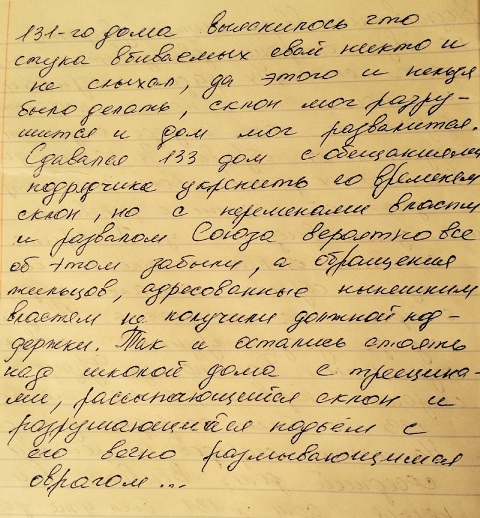 131-го дома выяснилось что
стука вбиваемых свай никто и
не слыхал, да этого и нельзя
было делать, склон мог разру-
шится и дом мог развалится.
Сдавался 133 дом с обещаниями
подрядчика укрепить со временем
склон, но с переменами власти
и развалом Союза вероятно все
об этом забыли, а обращения
жильцов, адресованные нынешним
властям не получили должной под-
держки. Так и остались стоять
над школой дома с трещина-
ми, рассыпающийся склон и
разрушающийся подъём с
его вечно размывающимся
оврагом...